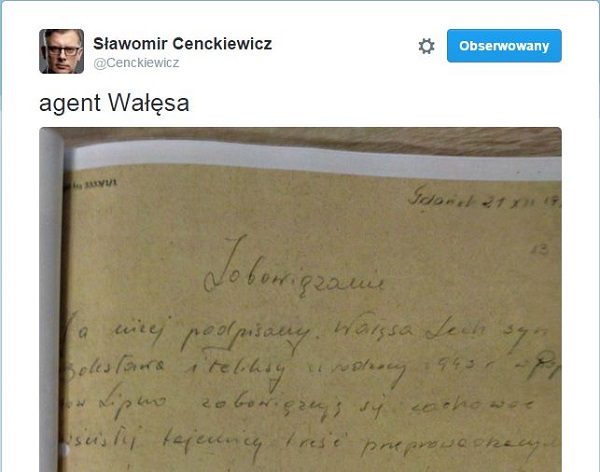 Sławomir Cenckiewicz
@Cenckiewicz
Obserwowany
agent Wałęsa
3333/1/1
Gdańsk 21 XII 19
Zobowiązanie
a niżej podpisany. Wałęsa Lech syn
Bolesława i Feliksy urodzony 1943 r w Pop
ow Lipno zobowiązuję się zachować
ścisłej tajemnicy treść przeprowadzanych